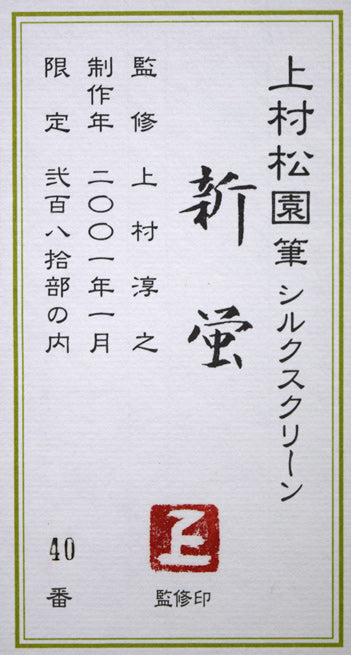 上村松園筆 シルクスクリーン
新 蛍
監修 上村淳之
制作年 二〇〇一年一月
限定 弐百八拾部の内
40番
上
監修印